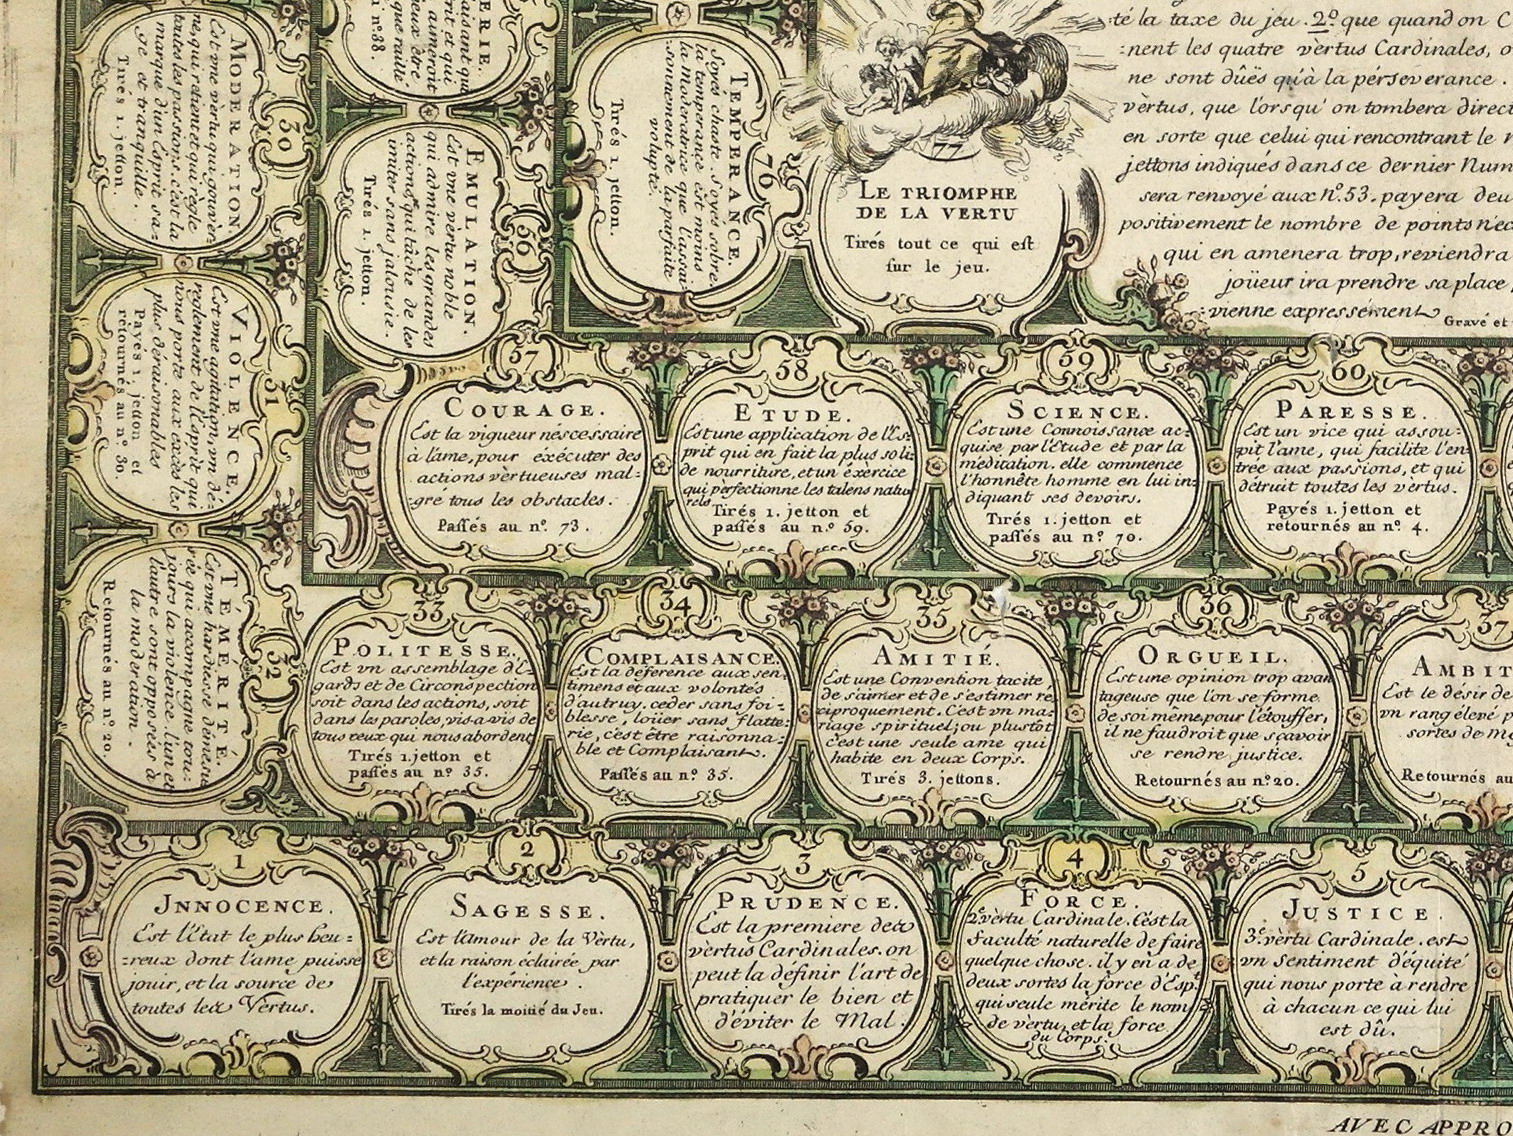 té la taxe du jeu. 2º. que quand on C
nent les quatre vèrtus Cardinales, o
ne sont dûës qu'à la pérséverance.
vèrtus, que lorsqu' on tombera direct
en sorte que celui qui rencontrant le
jettons indiqués dans ce dernier Num
sera renvoyé aux nº. 53. payera deu
positivement le nombre de points néc
qui en amenera trop, reviendra
joüeur ira prendre sa place
vienne expressément
Gravé et
77
LE TRIOMPHE
DE LA VERTU
Tirés tout ce qui est
sur le jeu.
76
TEMPERANCE.
Soyés chaste. Soyés sobre.
la temperance est moins
la Moderatrice que l'assai-
sonnement de la parfaite
volupté.
Tirés 1. jetton.
ERIE.
nº. 38.
56
EMULATION.
Est une vèrtu noble
qui admire les grandes
actions, qui tâche de les
imiter sans jalousie.
Tirés 1. jetton.
30
MODERATION
Est une vèrtu qui gouvèr-
ne, qui retient et qui règle
toutes les passions. c'est la
marque d'un Esprit sa-
ge et tranquille.
Tirés 1. jetton.
31
VIOLENCE.
Est une agitation, un dé-
reglement de l'esprit qui
nous porte aux excès les
plus déraisonables
Payés 1. jetton et
retournés au nº 30.
32
TEMÉRITÉ.
Est une hardiesse démesu
rée qui accompagne tou-
jours la violence. l'un et
l'autre sont opposées à
la moderation.
Retournés au nº 20.
57
COURAGE.
Est la vigueur néscessaire
à l'ame, pour exécuter des
actions vèrtueuses mal-
gré tous les obstacles.
Passés au nº. 73.
58
ETUDE.
Est une application de l'Es-
prit qui en fait la plus soli-
de nourriture, et un éxercice
qui pèrfectionne les talens natu
rels.
Tirés 1. jetton et
passés au n.º 59.
59
SCIENCE.
Est une Connoissance ac-
quise par l'Etude et par la
méditation. elle commence
l'honnête homme en lui in-
diquant ses devoirs.
Tirés 1. jetton et
passés au nº 70.
60
PARESSE.
Est un vice qui assou-
pit l'ame, qui facilite l'en-
trée aux passions, et qui
détruit toutes les vèrtus.
Payés 1. jetton et
retournés au nº. 4.
33
POLITESSE.
Est un assemblage d'E-
gards et de Circonspection
soit dans les actions, soit
dans les paroles, vis-a-vis de
tous ceux qui nous abordent
Tirés 1. jetton et
passés au nº 35.
34
COMPLAISANCE.
Est la déference aux sen-
timens et aux volontés
d'autruy. ceder sans foi-
blesse, loüer sans flatte-
rie, c'est être raisonna-
ble et Complaisant
Passés au nº 35.
35
AMITIÉ.
Est une Convention tacite
de s'aimer et de s'estimer re
ciproquement. C'est un ma-
riage spirituel; ou plustôt
c'est une seule ame qui
habite en deux Corps.
Tirés 3. jettons.
36
ORGUEIL.
Est une opinion trop avan
tageuse que l'on se forme
de soi meme. pour l'étouffer,
il ne faudroit que sçavoir
se rendre justice.
Retournés au nº 20.
37
AMBIT
Est le désir de
un rang élevé p
sortes de
Retournés au
1
JNNOCENCE.
Est l'Etat le plus heu-
reux dont l'ame puisse
jouir, et la source de
toutes les Vèrtus.
2
SAGESSE.
Est l'amour de la Vèrtu,
et la raison éclairée par
l'expérience.
Tirés la moitié du Jeu.
3
PRUDENCE.
Est la premiere des
vèrtus Cardinales. on
peut la definir l'art de
pratiquer le bien et
d'éviter le Mal.
4
FORCE.
2e vèrtu Cardinale. C'est la
Faculté naturelle de faire
quelque chose. il y en a de
deux sortes la force d'Esp.t
qui seule mérite le nom
de vèrtu, et la force
du Corps.
5
JUSTICE.
3e. vèrtu Cardinale. est
un Sentiment d'équité
qui nous porte à rendre
à chacun ce qui lui
est dû.
AVEC APPRO